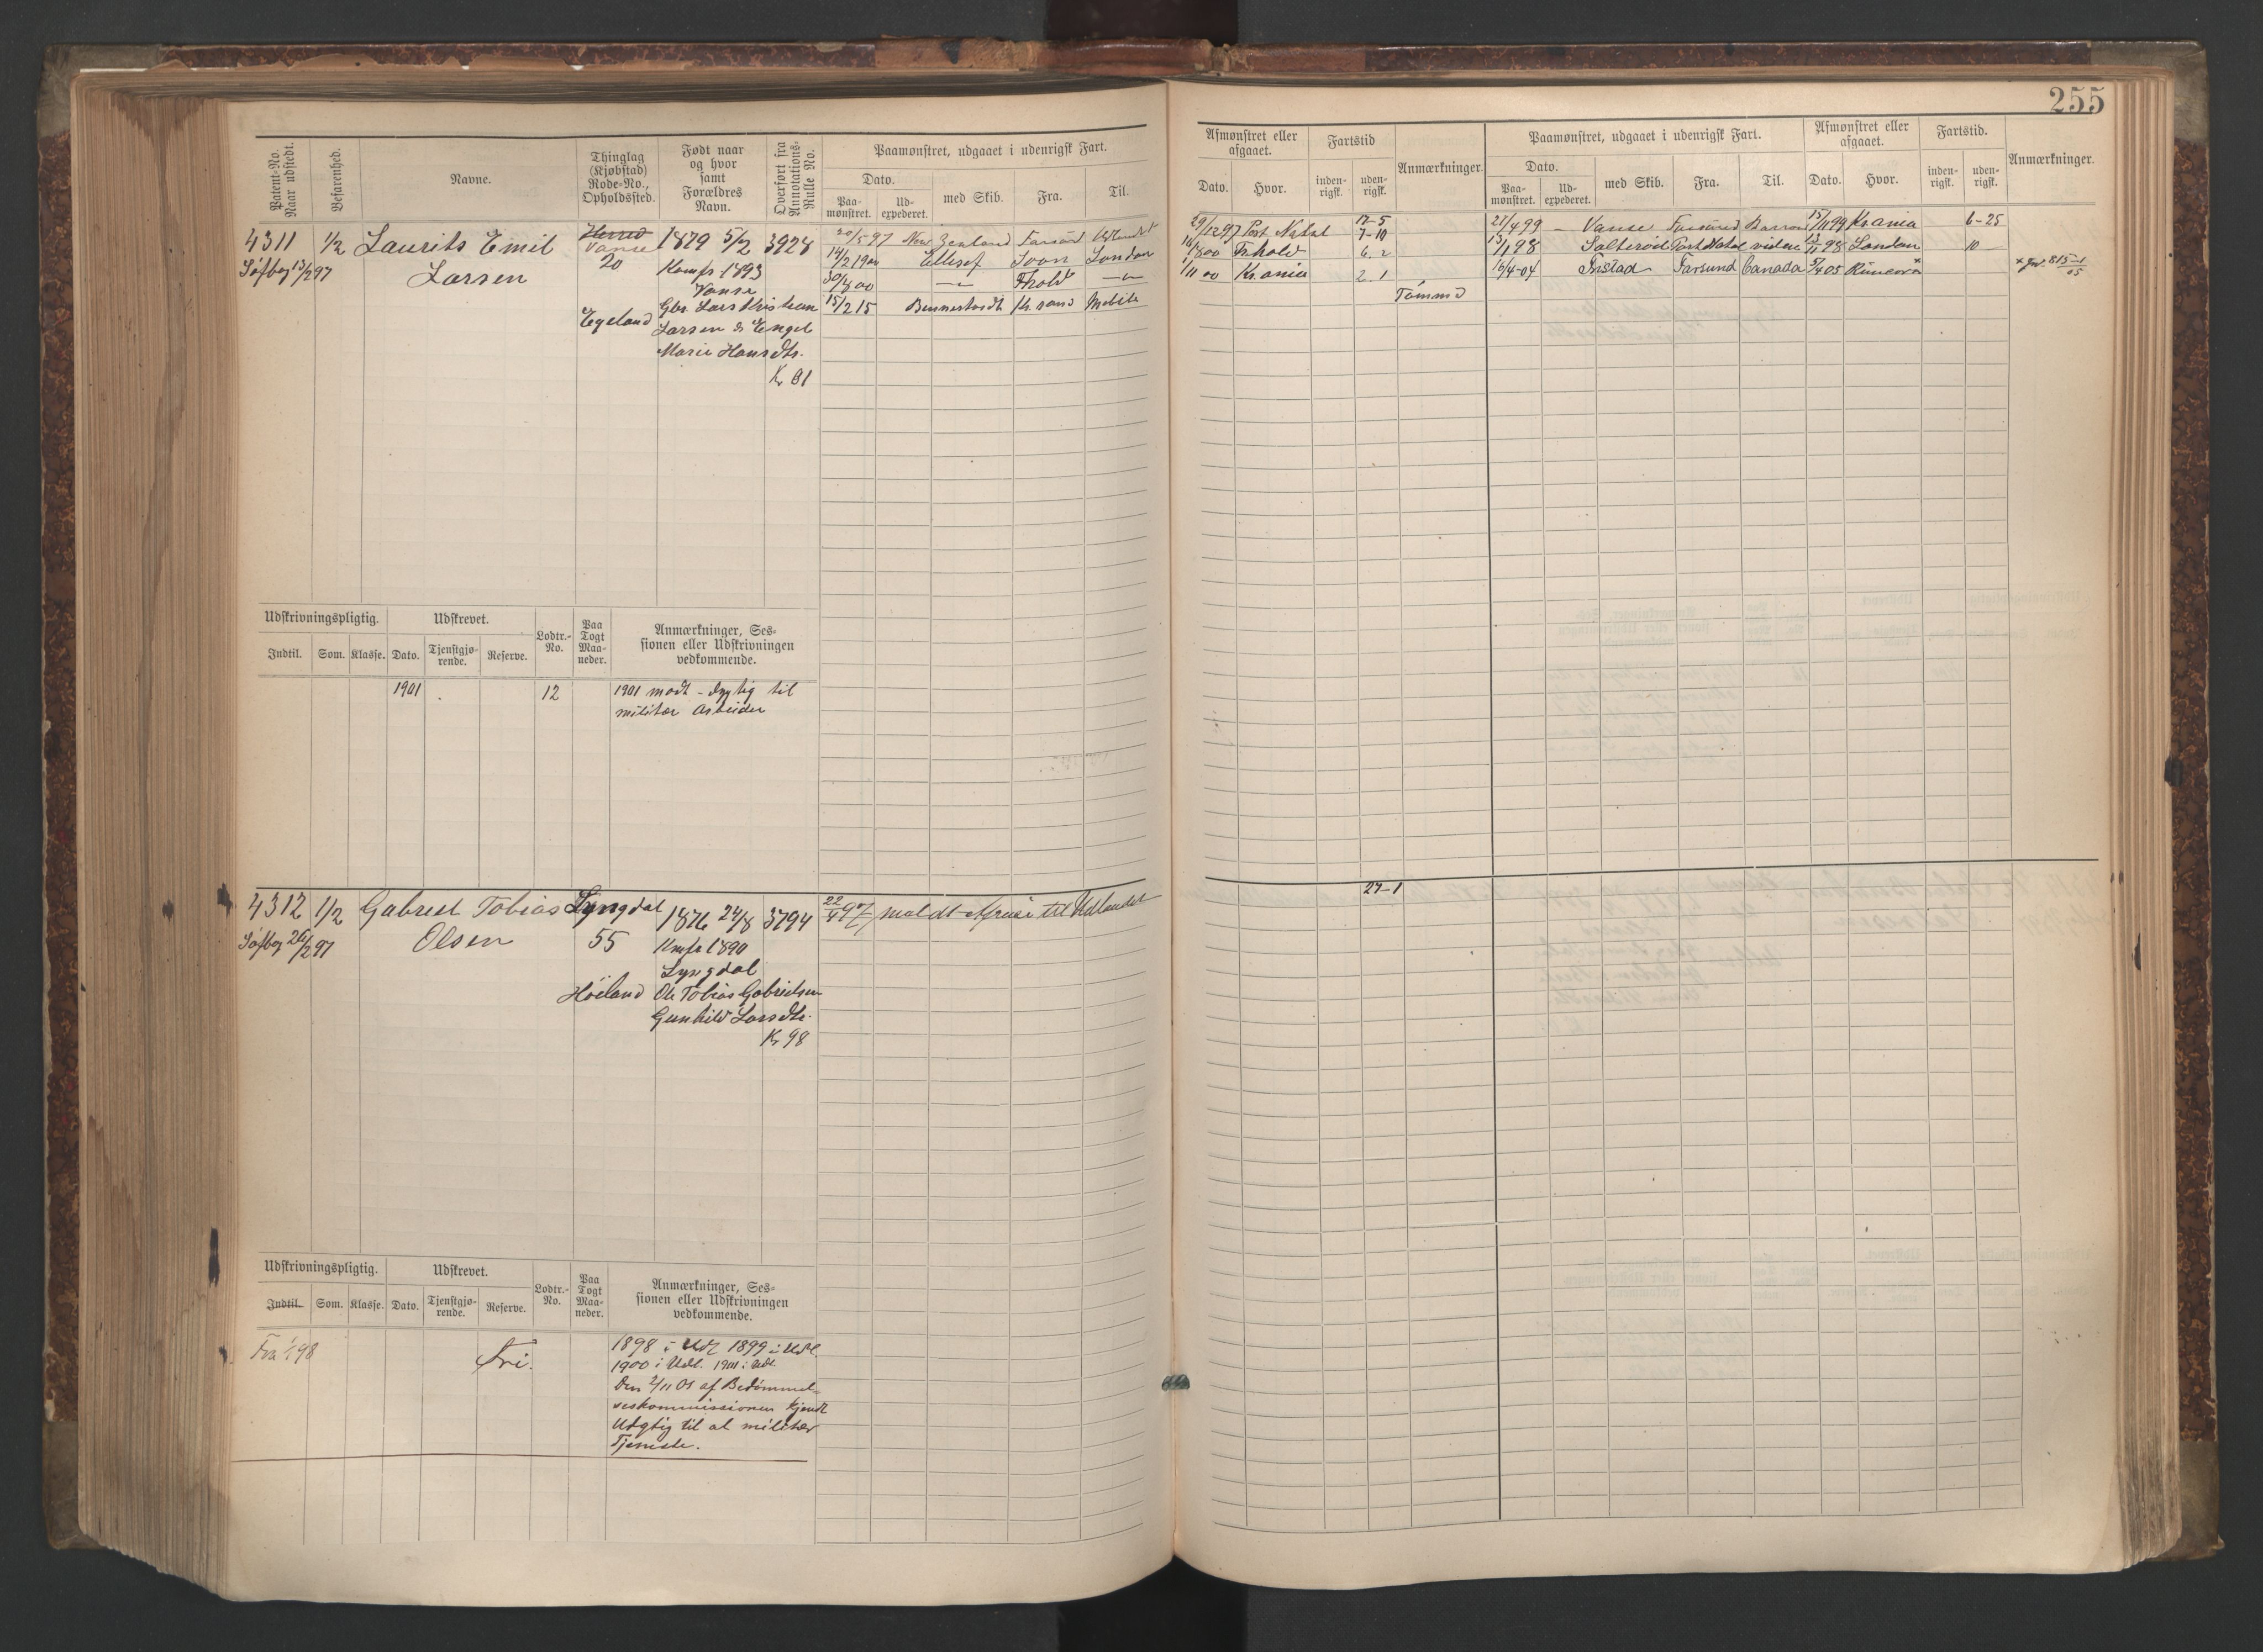 255
Patent-No. Naar udstedt.
Befarenhed.
Navne.
Thinglag (Kjøbstad) Rode-No., Opholdssted.
Født naar og hvor samt Forældres Navn.
Overført fra Annotations-Rulle No.
Paamønstret, udgaaet i udenrigsk Fart.
Dato.
Paa-mønstret.
Ud-expederet.
med Skib.
Fra.
Til.
4311 1/2 Laurits Emil Vanse 1879 5/2 3928
Søfbog 13/2 97 Larsen 20 Konfr 1893
Vanse
Egeland Gbr. Lars Kristian
Larsen & Engel
Marie Hansdtr.
Kr 01
20/5 97 New Zealand Farsund Udlandet
14/2 1900 Ellesef London
30/8 00 -"- Fhold -"-
15/2 15 Bennestvedt Kr.sand Mobile
Udskrivningspligtig.
Udskrevet.
Lodtr.-No.
Paa Togt Maa-neder.
Anmærkninger, Ses-
sionen eller Udskrivningen
vedkommende.
Indtil. Som. Klasse. Dato. Tjenstgjø-rende. Reserve.
1901 12 1901 mødt - dygtig til
militær Arbeider
4312 1/2 Gabriel Tobias Lyngdal 1876 24/8 3794
Søfbog 26/2 97 Olsen 55 Konfr 1890
Lyngdal
Høiland Ole Tobias Gabrielsen
Gunhild Larsdtr.
Kr 98
22/4 97 meldt Afreise til Udlandet
Udskrivningspligtig.
Udskrevet.
Lodtr.-No.
Paa Togt Maa-neder.
Anmærkninger, Ses-
sionen eller Udskrivningen
vedkommende.
Indtil. Som. Klasse. Dato. Tjenstgjø-rende. Reserve.
Fra 1/1 98 Fri. 1898 i Udl 1899 i Udl.
1900 i Udl. 1901 i Udl
Den 2/11 01 af Bedømmel-
seskommissionen kjendt
Udygtig til al militær
Tjeneste.
Afmønstret eller afgaaet.
Fartstid
Anmærkninger.
Paamønstret, udgaaet i udenrigsk Fart.
Afmønstret eller afgaaet.
Fartstid.
Anmærkninger.
Dato. Hvor. inden-rigsk. uden-rigsk.
Dato.
Paa-mønstret.
Ud-expederet.
med Skib. Fra. Til. Dato. Hvor. inden-rigsk. uden-rigsk.
29/12 97 Port Natal 7-10 21/4 99 - Vanse Farsund 15/11 99 Kr.ania 6-25
16/8 00 Fr.hald 6. 2 13/1 98 Salterød Port Natal videre 98 London 10 -
1/11 00 Kr.ania 2. 1 16/4-04 Tristad Farsund Canada 5/4 05
Tømmrd
27-1